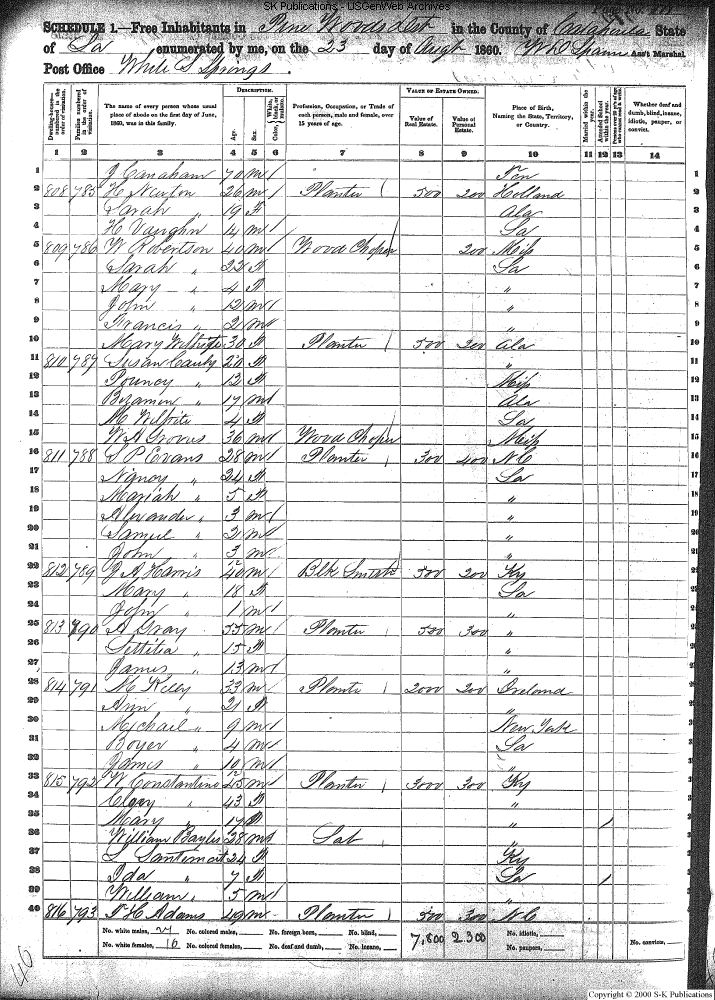 SK Publications - USGenWeb Archives
SCHEDULE 1.—Free Inhabitants in Pine Woods Dist in the County of Catahoula State
of La enumerated by me, on the 23 day of Augt 1860. Ass't Marshal
Post Office White S Springs.
DESCRIPTION. VALUE OF ESTATE OWNED.
Dwelling-houses—numbered in the order of visitation. Families numbered in the order of visitation. The name of every person whose usual place of abode on the first day of June, 1860, was in this family. Age. Sex. Color, White, black, or mulatto. Profession, Occupation, or Trade of each person, male and female, over 15 years of age. Value of Real Estate. Value of Personal Estate. Place of Birth, Naming the State, Territory, or Country. Married within the year. Attended School within the year. Persons over 20 y'rs of age who cannot read & write. Whether deaf and dumb, blind, insane, idiotic, pauper, or convict.
1 2 3 4 5 6 7 8 9 10 11 12 13 14
1 J Canaham 70 m Ten 1
2 808 785 H Newton 26 m Planter 500 200 Holland 2
3 Sarah " 19 F Ala 3
4 H Vaughn 14 m La 4
5 809 786 W Robertson 40 m Wood Choper 200 Miss 5
6 Sarah " 22 F La 6
7 Mary " 4 F " 7
8 John " 12 m " 8
9 Francis " 2 m " 9
10 Mary 30 F Planter 500 200 Ala 10
11 810 787 Susan F " 11
12 Pouncy " 12 F Miss 12
13 Benjamin " 17 m Ala 13
14 M 4 F La 14
15 W A Groves 36 m Wood Choper Miss 15
16 811 788 S P Evans 28 m Planter 300 400 N C 16
17 Nancy " 24 F La 17
18 Mariah " 5 F " 18
19 Alexander " 3 m " 19
20 Samuel " 2 m " 20
21 John " 3/12 m " 21
22 812 789 J A Harris 40 m Blk Smith 500 200 Ky 22
23 Mary " 18 F La 23
24 John " 1 m " 24
25 813 790 A Gray 55 m Planter 500 300 " 25
26 Lettitia " 15 F " 26
27 James " 13 m " 27
28 814 791 M Kelly 33 m Planter 2000 200 Ireland 28
29 Ann " 21 F " 29
30 Michael " 9 m New York 30
31 Boyer " 4 m La 31
32 James " 10/12 m " 32
33 815 792 W Constantine 45 m Planter 3000 300 Ky 33
34 " 43 F " 34
35 Mary " 17 F " 1 35
36 William Bayles 28 m Lab " 36
37 S 24 F Ky 37
38 Ida " 7 F La 1 38
39 William " 5 m " 39
40 816 793 T H Adams 49 m Planter 500 300 N C 40
No. white males, 24 No. colored males, No. foreign born, No. blind, 7,800 2.300 No. idiotic,
No. white females, 16 No. colored females, No. deaf and dumb, No. insane, No. paupers, No. convicts,
46
Copyright © 2000 S-K Publications